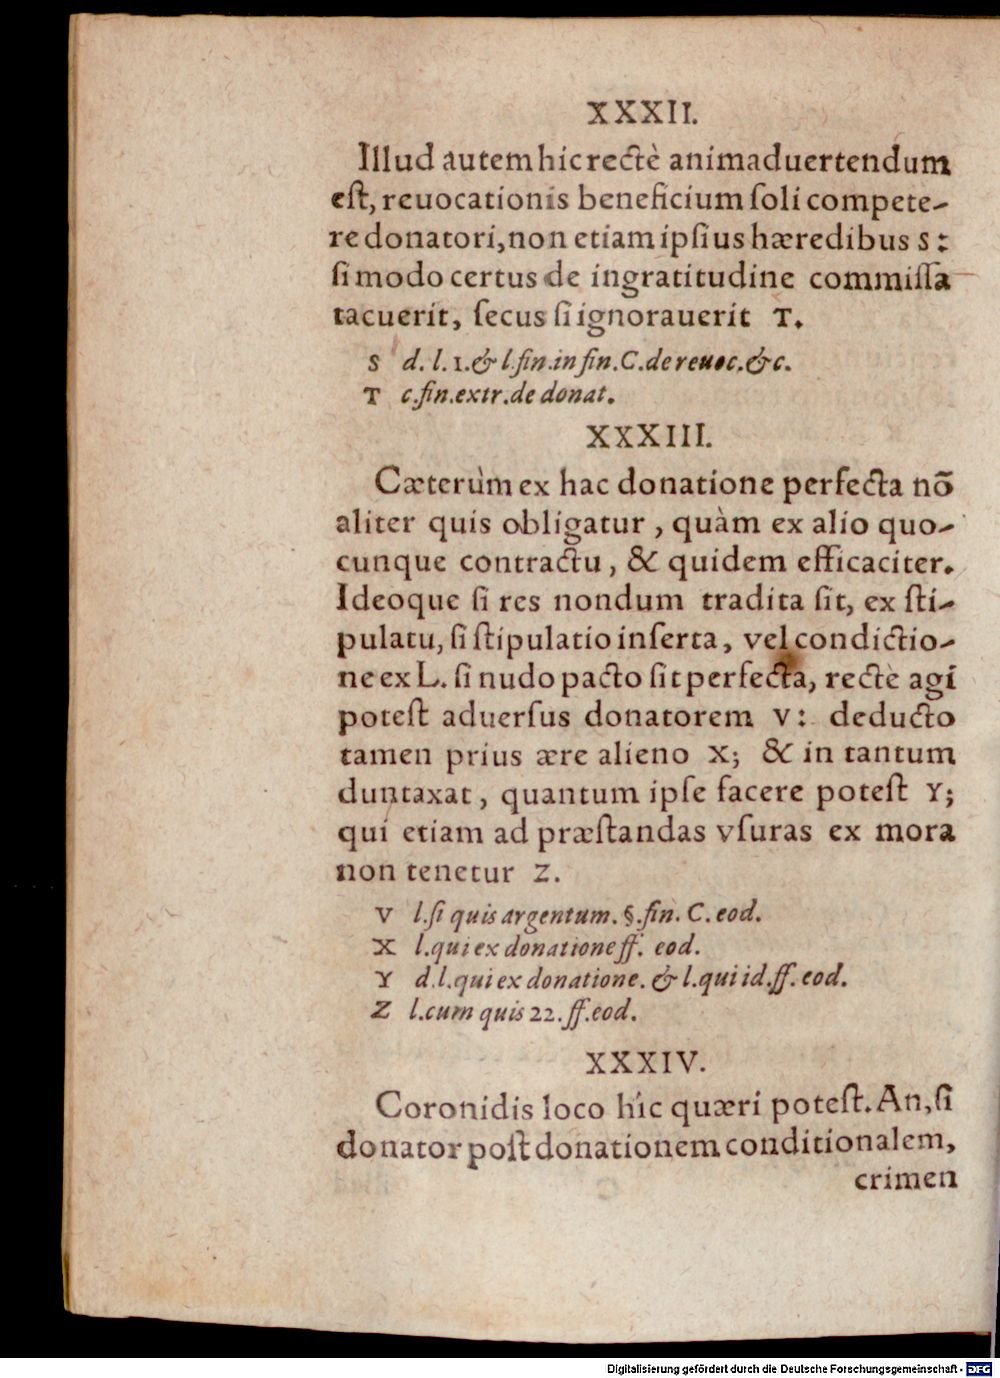 XXXII.
Illud autem hic rectè animaduertendum
eſt, reuocationis beneficium ſoli compete-
re donatori, non etiam ipſius hæredibus S:
ſi modo certus de ingratitudine commiſſa
tacuerit, ſecus ſi ignorauerit T.
S d. l. 1. & l. fin. in fin. C. de reuoc. &c.
T c. fin. extr. de donat.
XXXIII.
Cæterùm ex hac donatione perfecta nõ
aliter quis obligatur, quàm ex alio quo-
cunque contractu, & quidem efficaciter.
Ideoque ſi res nondum tradita ſit, ex ſti-
pulatu, ſi ſtipulatio inſerta, vel condictio-
ne ex L. ſi nudo pacto ſit perfecta, rectè agi
poteſt aduerſus donatorem V: deducto
tamen prius ære alieno X; & in tantum
duntaxat, quantum ipſe facere poteſt Y;
qui etiam ad præſtandas vſuras ex mora
non tenetur Z.
V l. ſi quis argentum. §. fin. C. eod.
X l. qui ex donatione ff. eod.
Y d. l. qui ex donatione. & l. qui id. ff. eod.
Z l. cum quis 22. ff. eod.
XXXIV.
Coronidis loco hîc quæri poteſt. An, ſi
donator poſt donationem conditionalem,
crimen
Digitalisierung gefördert durch die Deutsche Forschungsgemeinschaft - DFG